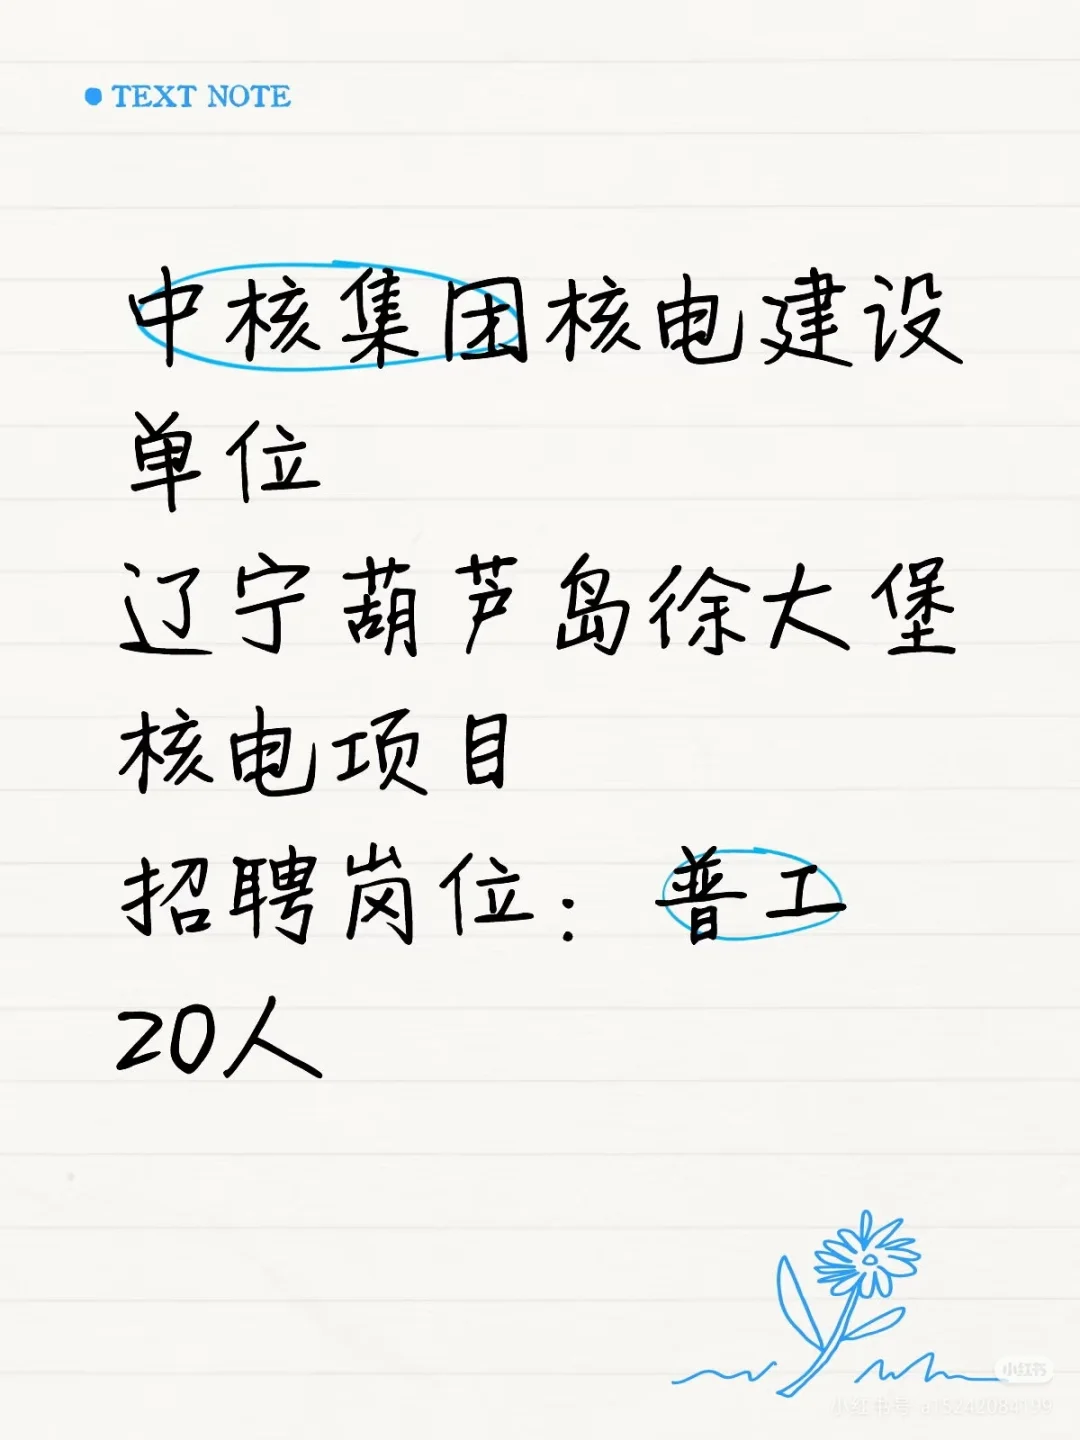 TEXT NOTE
中核集团核电建设
单位
辽宁葫芦岛徐大堡
核电项目
招聘岗位：普工
20人
小红书
小红书号